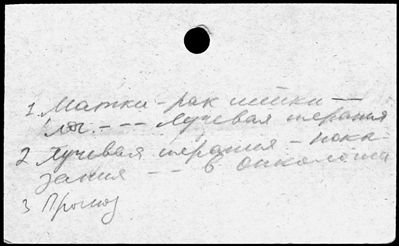 1. Матки - рак шейки -
леч. - - - Лучевая терапия
2 Лучевая терапия - пока-
зания - - - в онкологии
3 Прогноз